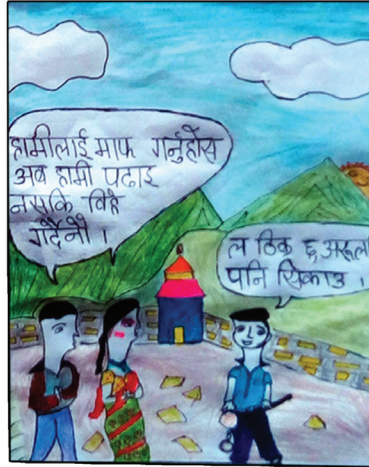 हामीलाई माफ गर्नुहोस
अब हामी पढाइ
नसकि विहे
गर्दैनौ ।
ल ठिक छ अरूला
पनि सिकाउ ।